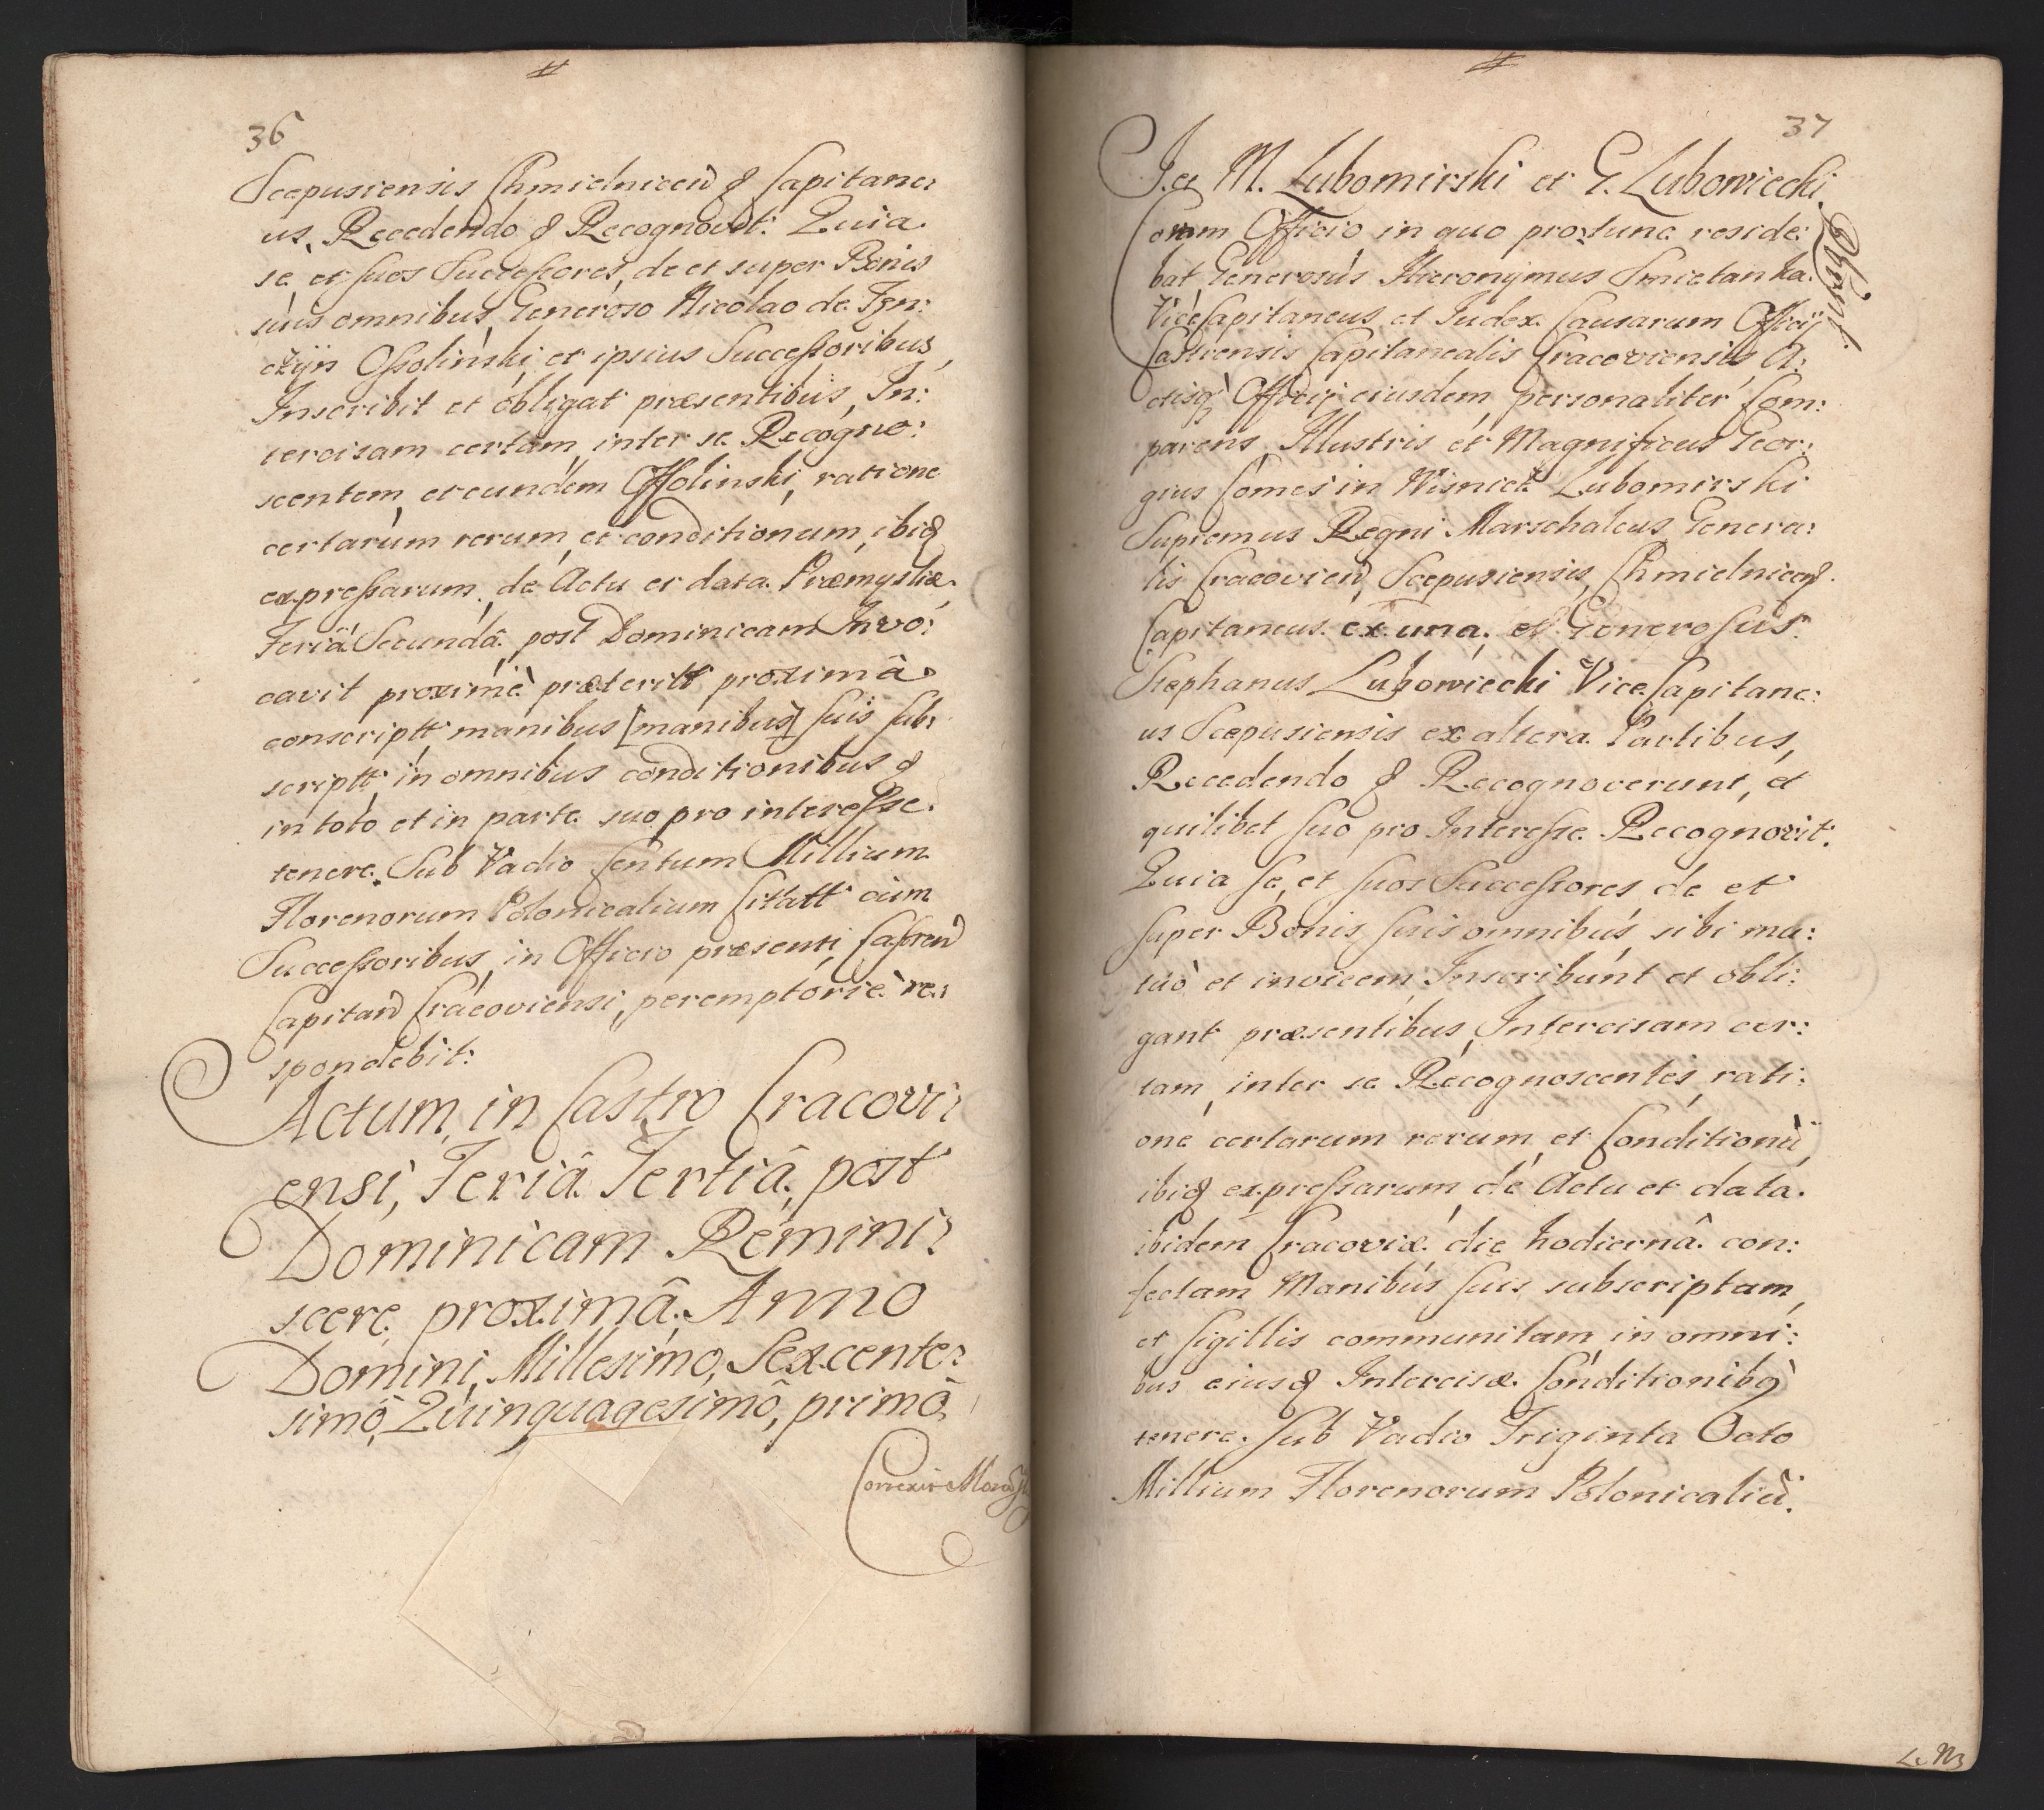 36
Scepusiensis Chmielnicen & Capitane:
us, Recedendo & Recognovit: Quia
se, et suos Successores, de et super Bonis
suis omnibus, Generoso Nicolao de Tęn:
czyn Ossolinski, et ipsius Successoribus,
Inscribit et obligat præsentibus, In:
tercisam certam, inter se Recogno:
scentem, et eundem Ossolinski, ratione
certarum rerum, et conditionum, ibiq
expressarum, de Actu et data Præmysliæ
Feriâ Secundâ post Dominicam Invo:
cavit proximè præteritt proximâ
conscriptt manibus [manibus] suis sub:
scriptt, in omnibus conditionibus &
in toto et in parte suo pro interesse
tenere. Sub Vadio Centum Millium
Florenorum Polonicalium Citatt cum
Successoribus, in Officio præsenti, Castren
Capitan Cracoviensi, peremptoriè re:
spondebit:
Actum in Castro Cracovi:
ensi, Feriâ Tertiâ, post
Dominicam Remini:
scere, proximâ. Anno
Domini, Millesimo, Sexcente:
simô, Quinquagesimô, primô.
Correxit
37
I. et M. Lubomirski et G. Lubowiecki
Obligant.
Coram Officio, in quo protunc reside:
bat, Generosus Hieronymus Smietanka
ViceCapitaneus, et Iudex Causarum Officij
Castrensis Capitanealis Cracoviensis A:
ctisq Officij eiusdem, personalitér Com:
parens, Illustris et Magnificus Geor:
gius Comes in Wisnicz Lubomirski
Supremus Regni Marschalcus, Genera:
lis Cracovien, Scepusiensis, Chmielnicen&
Capitaneus ex una, et Generosus
Stephanus Lubowiecki ViceCapitane:
us Scepusiensis ex altera Partibus,
Recedendo & Recognoverunt, et
quilibet suo pro Interesse Recognovit:
Quia se, et suos Successores de et
super Bonis suis omnibus, sibi mu:
tuò et invicem, Inscribunt et obli:
gant præsentibus, Intercisam cer:
tam, inter se Recognoscentes, rati:
one certarum rerum, et Conditionũ
ibiq expressarum, de Actu et data
ibidem Cracoviæ die hodiernâ con:
fectam Manibus suis subscriptam,
et sigillis communitam, in omni:
bus eiusq Intercisæ Conditionibq
tenere. Sub Vadio Triginta Octo
Millium Florenorum Polonicaliũ.